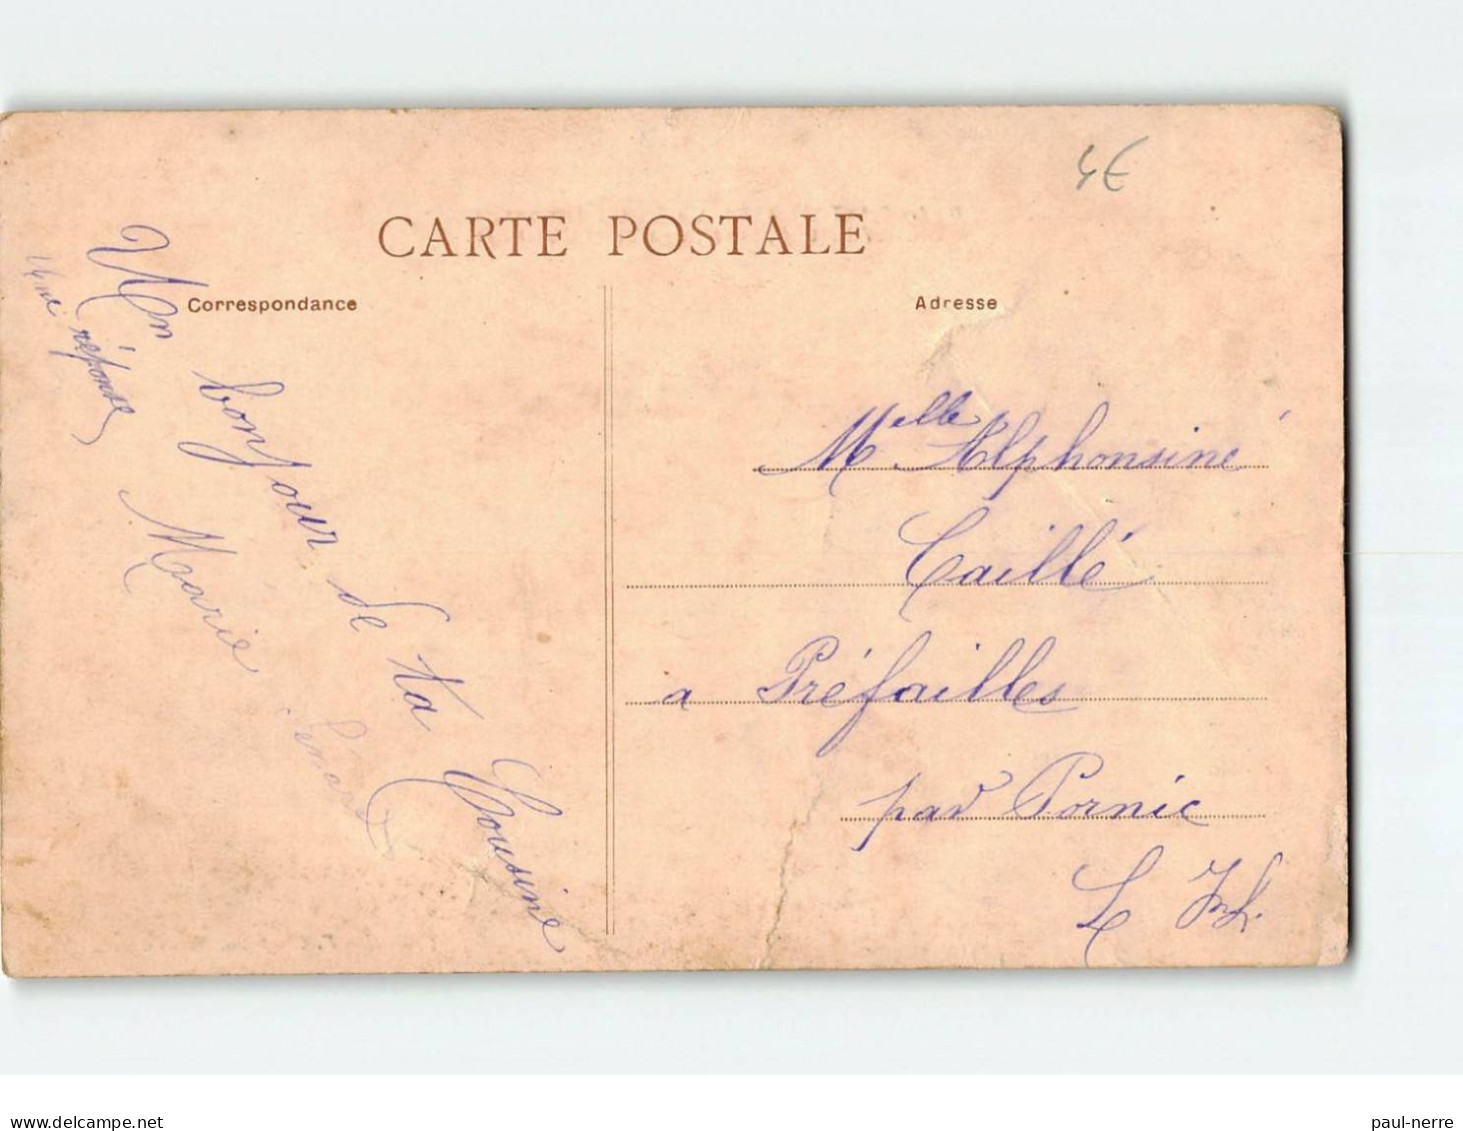 4€
CARTE POSTALE
Correspondance
Adresse
Un bonjour de ta Cousine
Marie
réponse
Melle Alphonsine
Caillé
a Préfailles
par Pornic
L Inf.
delcampe.net
paul-nerre